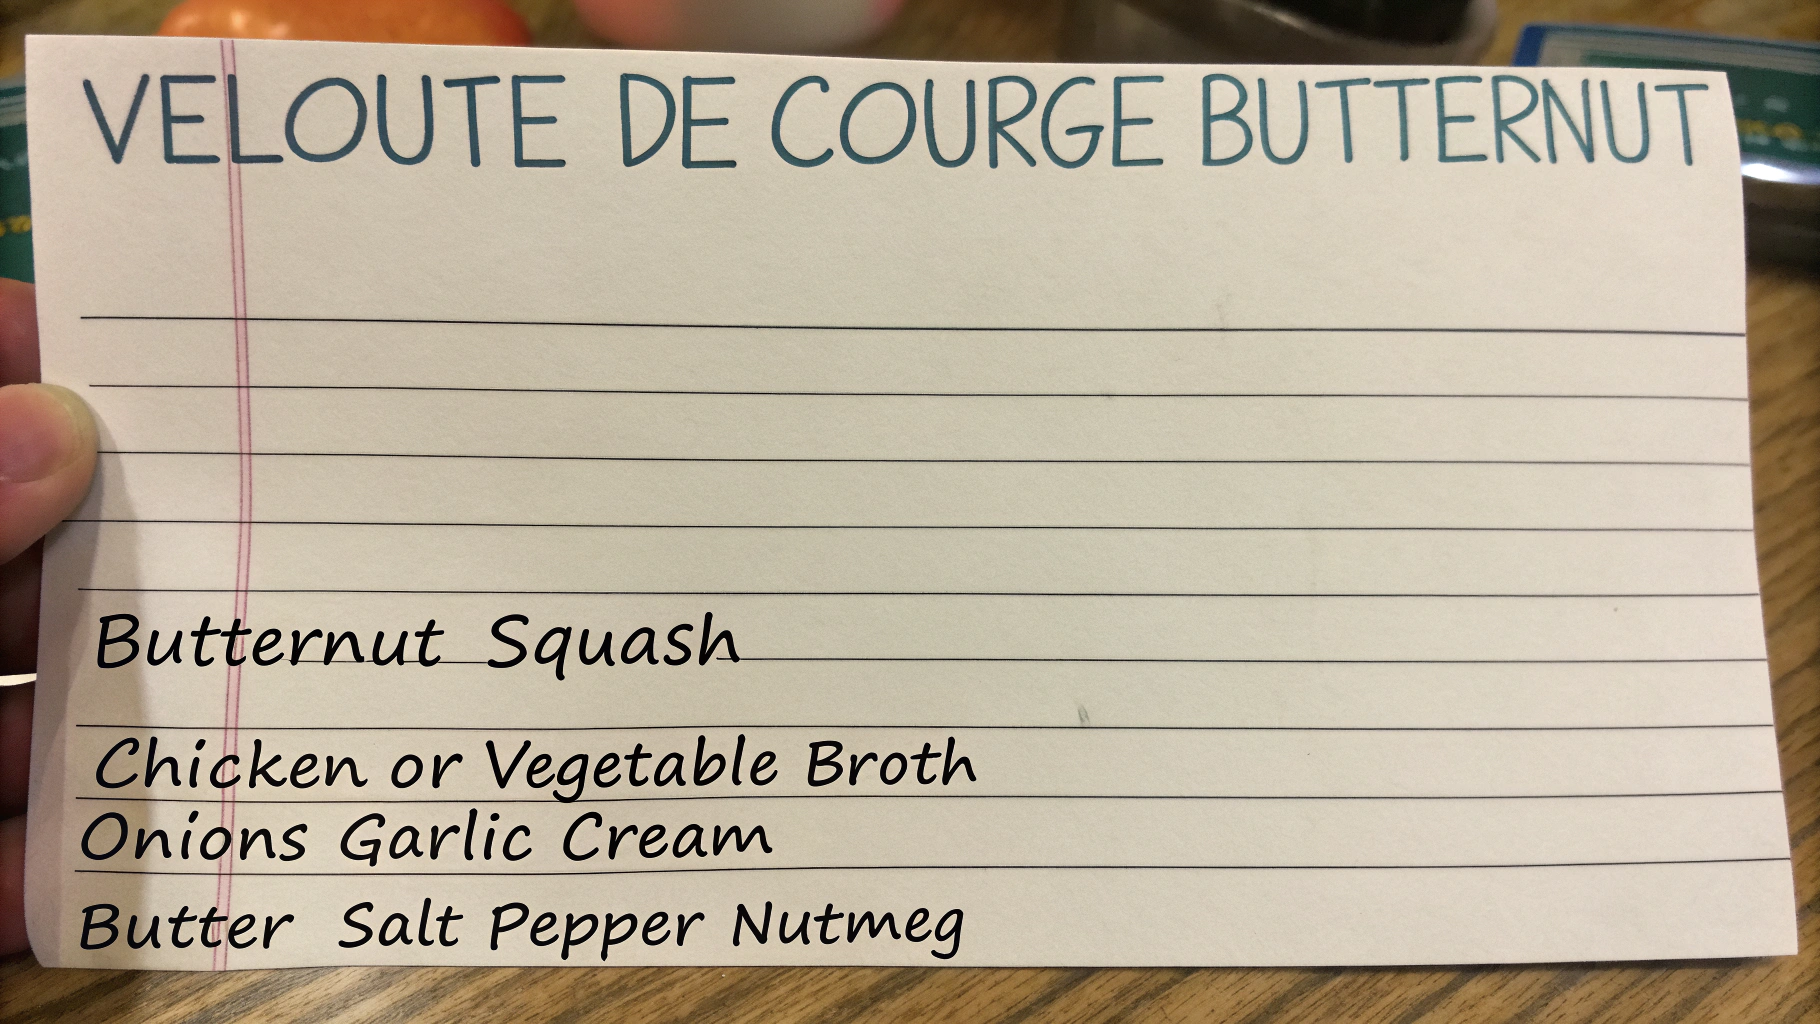 VELOUTE DE COURGE BUTTERNUT
Butternut Squash
Chicken or Vegetable Broth
Onions Garlic Cream
Butter Salt Pepper Nutmeg